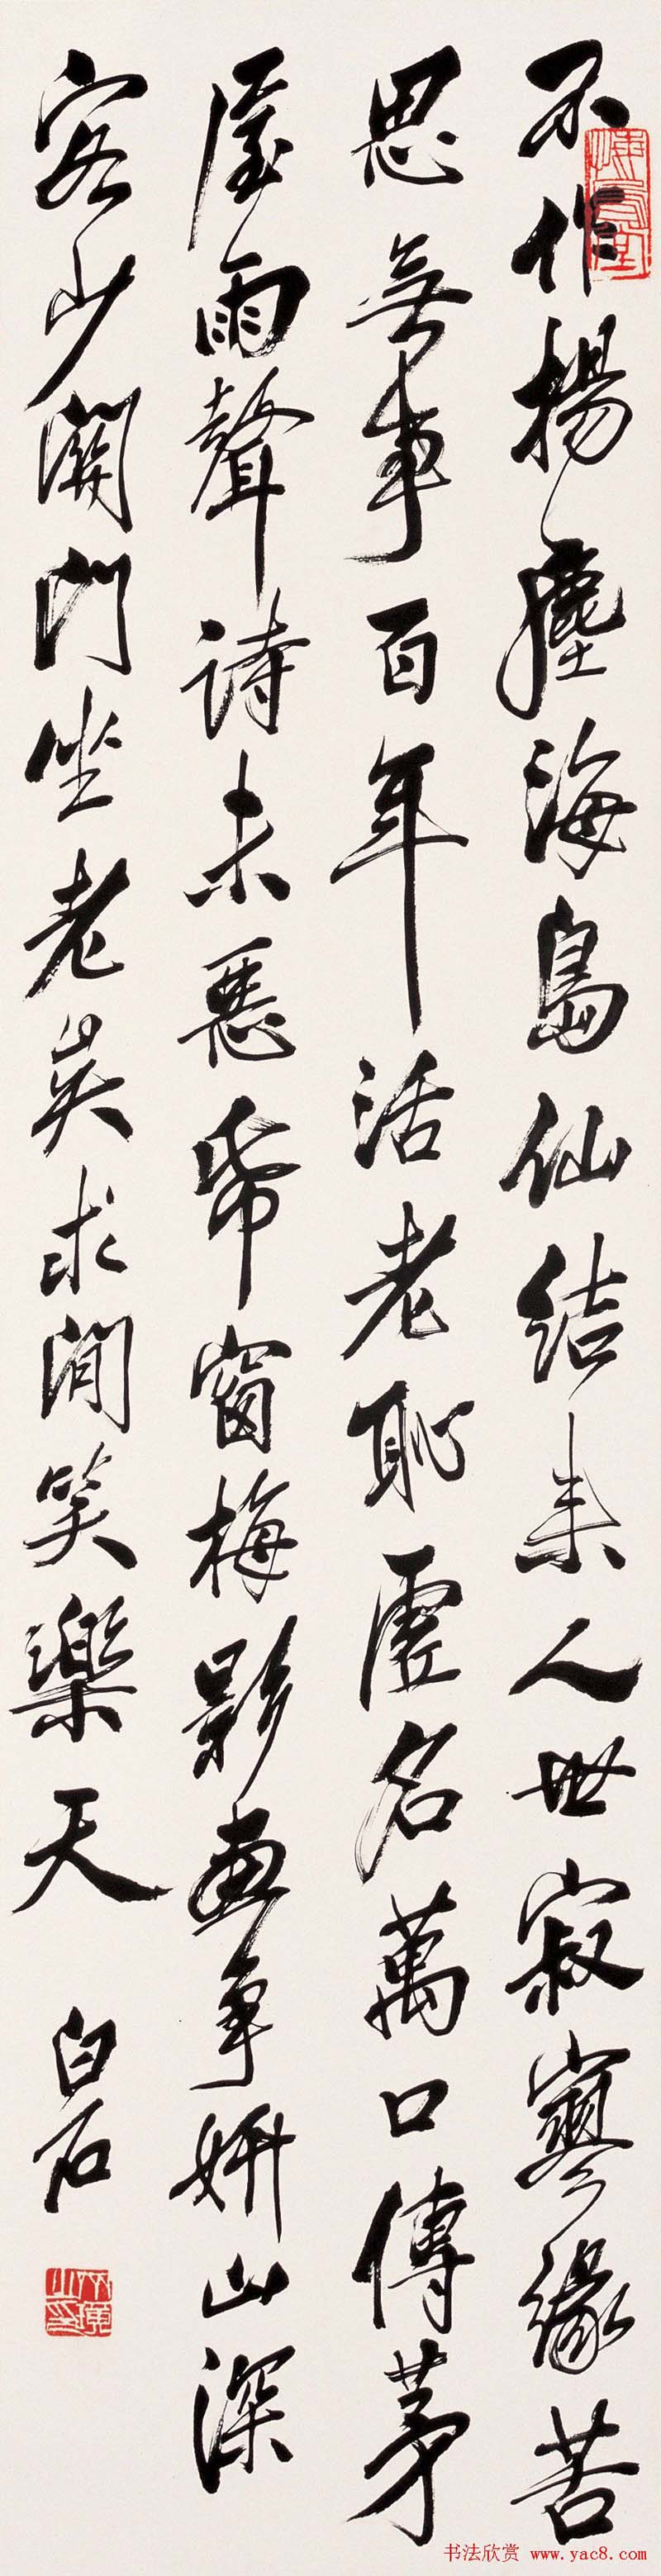 不作揚塵海島仙結來人世寂寥緣苦
思無事百年活老恥虛名萬口傳茅
屋雨聲詩未惡紙窗梅影畫爭妍山深
客少關門坐老矣求閒笑樂天
白石
书法欣赏 www.yac8.com